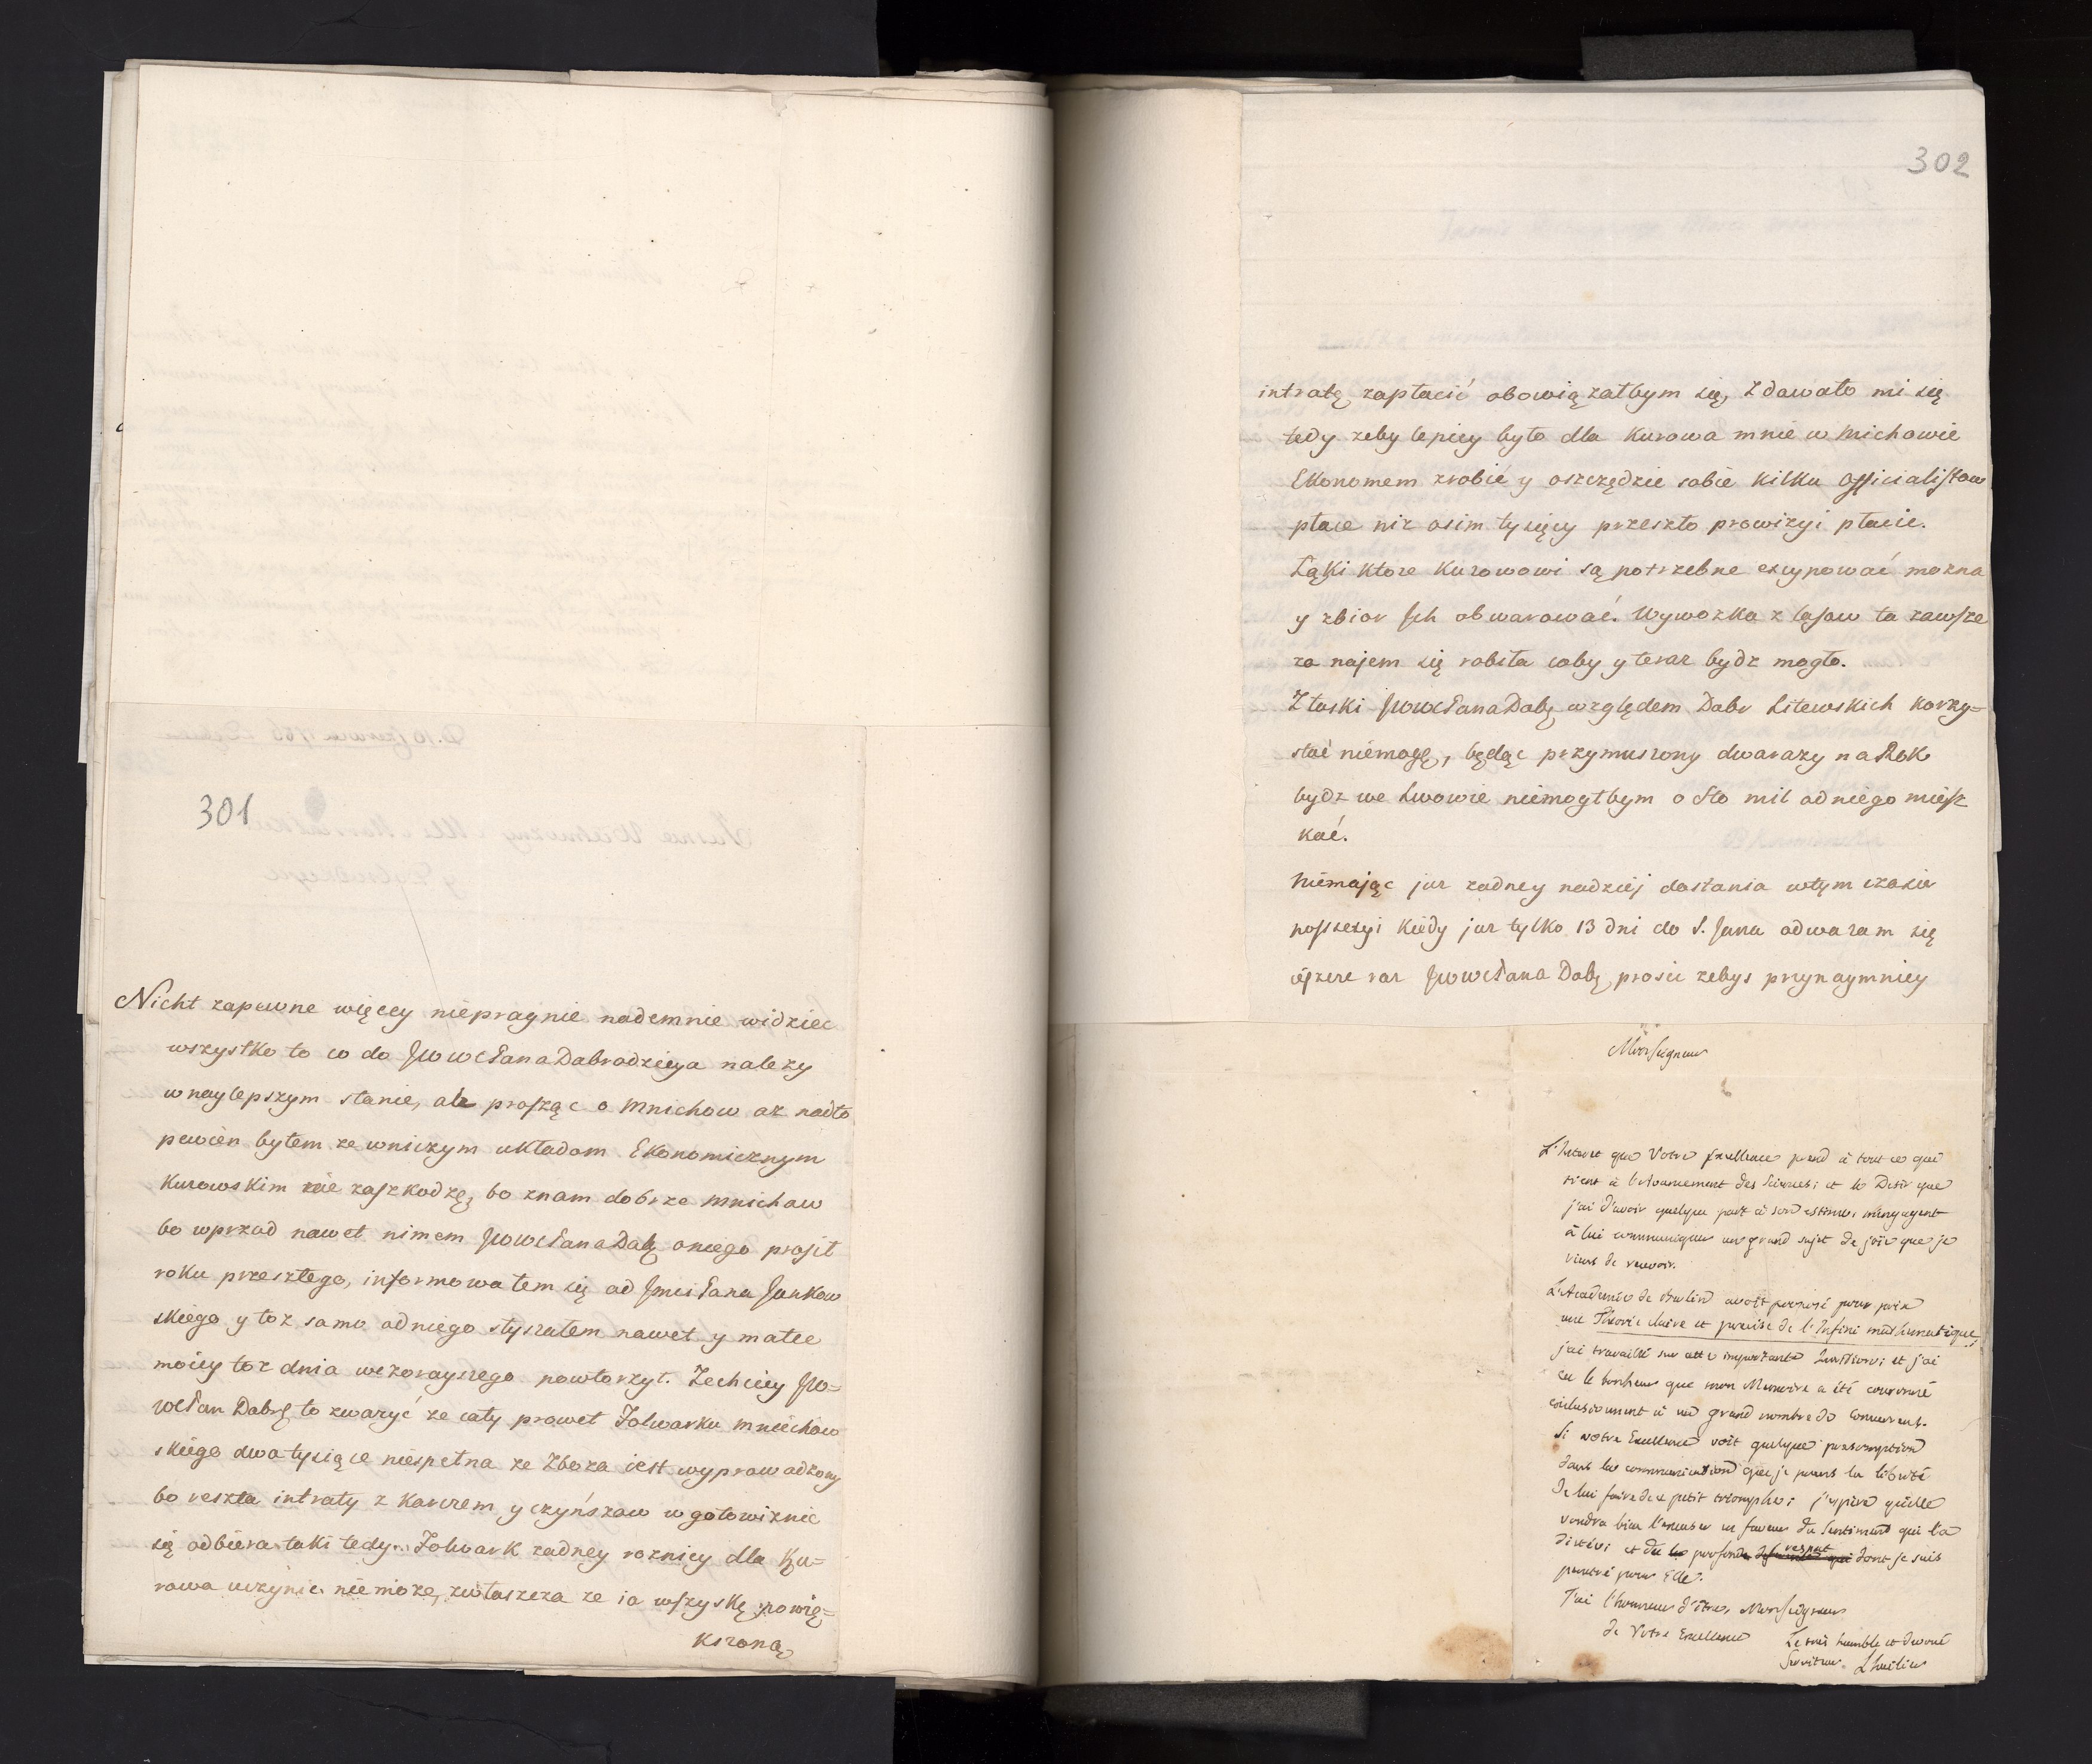 301
Nicht zapewne więcey niepragnie nademnie widziec
wszystko to co do JWWcPana Dobrodzieja nalezy
w naylepszym stanie, ale prosząc o Mnichow az nadto
pewien byłem ze wniczym układom Ekonomicznym
Kurowskim nie zaszkodzę, bo znam dobrze Mnichow
bo wprzod nawet nimem JWWcPana Dobą oniego prosił
roku przeszłego, informowałem się od JmciPana Junkow
skiego y toz samo odniego słyszałem nawet y matce
moiey toz dnia wczorayszego powtorzył. Zechciey JW=
WcPan Dobrą to zwazyć ze cały prowet Folwarku Mniichow
skiego dwa tysiące niespełna ze Zboza iest wyprowadzony
bo reszta intraty z Karczem y czyńszow w gotowiznie
się odbiera taki tedy Folwark zadney roznicy dla Ku=
rowa uczynic niemoze, zwłaszcza ze ia wszyskę powię=
kszoną
302
intratę zapłacić obowiązałbym się, Zdawało mi się
tedy zeby lepiey było dla Kurowa mnie w Michowie
Ekonomem zrobić y oszczędzie sobie kilku Officialistow
płace niz osim tysięcy przeszło prowizyi płacie.
Łąki ktore Kurowowi są potrzebne excypować mozna
y zbior Jch obwarować. Wywozka z lasow ta zawsze
za najem się robiła coby y teraz bydz mogło.
Z łaski JWWcPana Dobą względem Dobr Litewskich korzy=
stać niemogę, będąc przymuszony dwarazy na Rok
bydz we Lwowie niemogłbym o Sto mil odniego miesz
kać.
Niemając juz zadney nadziej dostania wtym czasie
possesyi kiedy juz tylko 13 dni do S. Jana odwazam się
ieszcze raz JWWcPana Dobą prosic zebys przynaymniey
Monseigneur
L'Interet que Votre Excellence prend à tout ce qui
tient à l'avancement des Sciences; et le Desir que
j'ai d'avoir quelque part à son estime, m'engagent
à lui communiquer un grand sujet de joïe que je
viens de recevoir.
L'Academie de Berlin avoit proposé pour prix
une Théorie claire et precise de l'Infini mathematique;
j'ai travaillé sur cette importante Question; et j'ai
eu le bonheur que mon Memoire a été couronné
exclusivement à un grand nombre de Concurrens.
Si votre Excellence voit quelque presomption
dans la communication que je prens la liberté
de lui faire de ce petit triomphe; j'espere qu'elle
voudra bien l'excuser en faveur du Sentiment qui l'a
dicteé; et du profond respect dont je suis
penetré pour Elle.
J'ai l'honneur d'être, Monseigneur
de Votre Excellence
Le très humble et devoué
Serviteur. Lhuilier